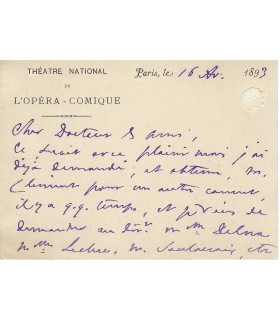 THÉATRE NATIONAL
DE
L'OPÉRA-COMIQUE
Paris, le 16 Av. 1893
Cher Docteur & ami,
Ce serait avec plaisir mais j'ai
déjà demandé, et obtenu, M.
Clément pour un autre concert,
il y a q.q. temps, et je viens de
demander au Dr. M Mlle Delna
M